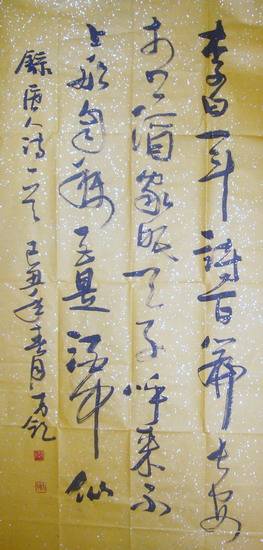 李白一斗詩百篇长安
市上酒家眠天子呼来不
上船自稱臣是酒中仙
錄唐人诗一首己丑年春月